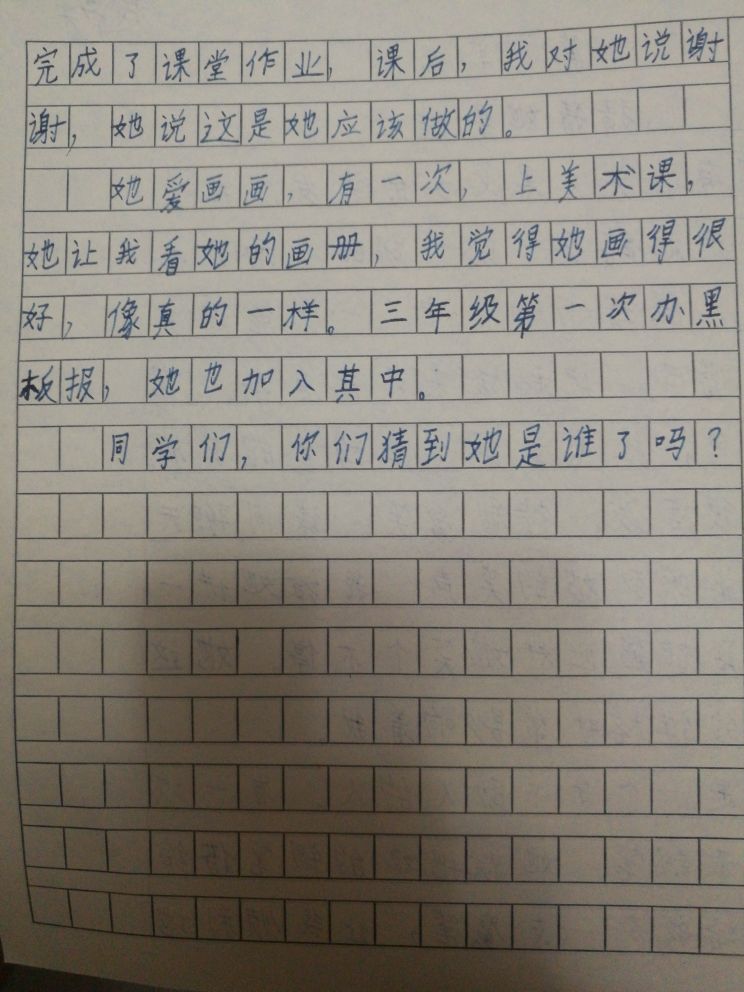 完成了课堂作业，课后，我对她说谢
谢，她说这是她应该做的。
她爱画画，有一次，上美术课，
她让我看她的画册，我觉得她画得很
好，像真的一样。三年级第一次办黑
板报，她也加入其中。
同学们，你们猜到她是谁了吗？